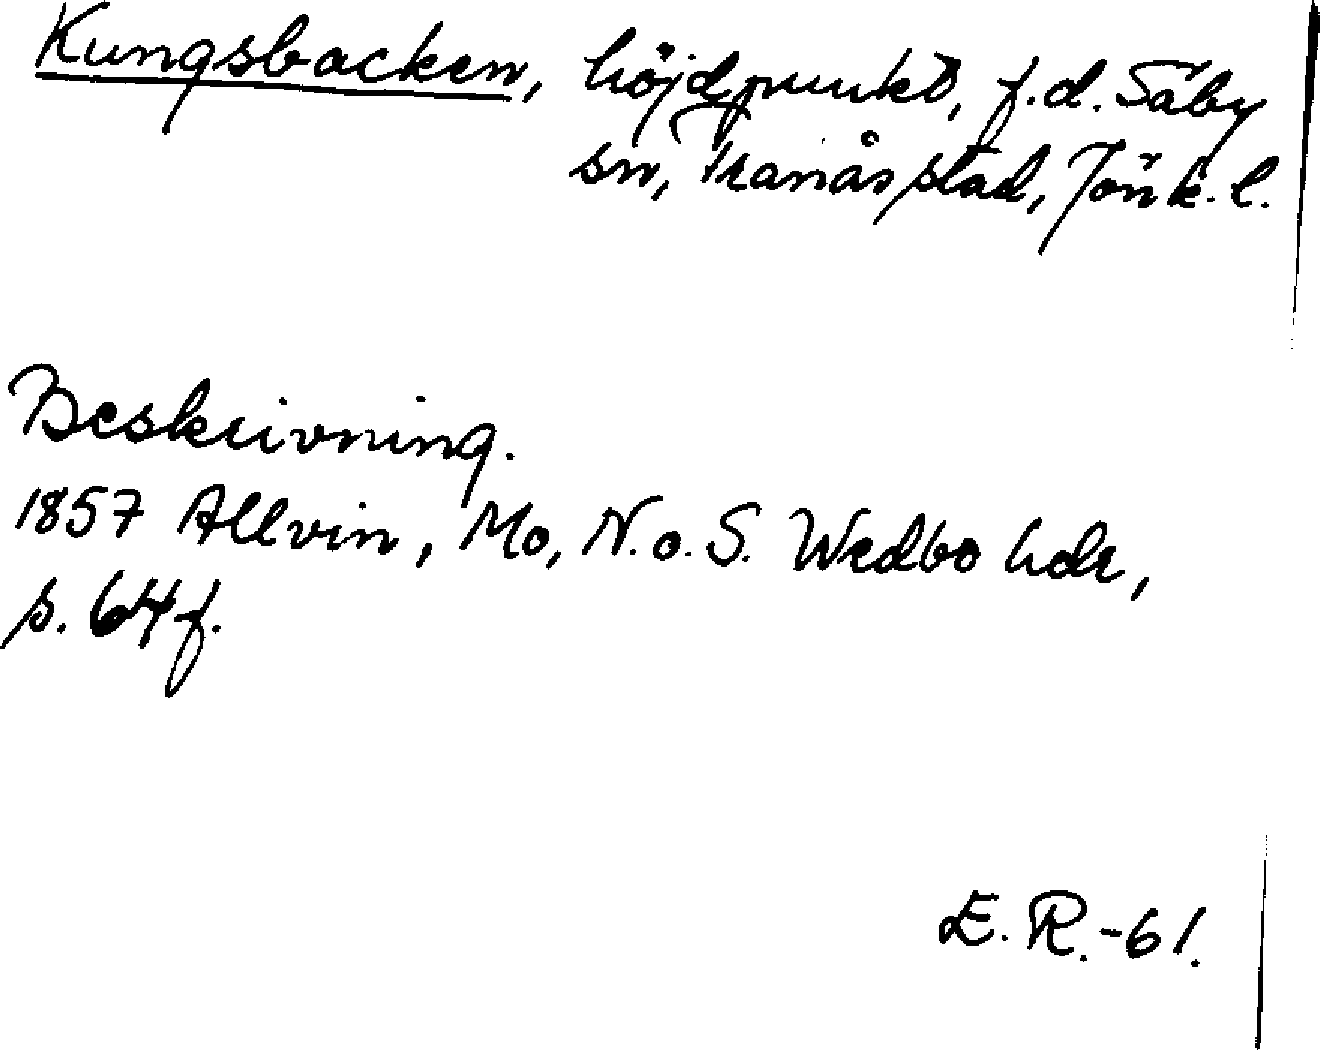 Kungsbacken, höjdpunkt, f.d. Säby
sn, Tranås stad, Jönk. l.
Beskrivning.
1857 Allvin, Mo, N. o. S. Wedbo hdr,
s. 64 f.
E. R. -61.